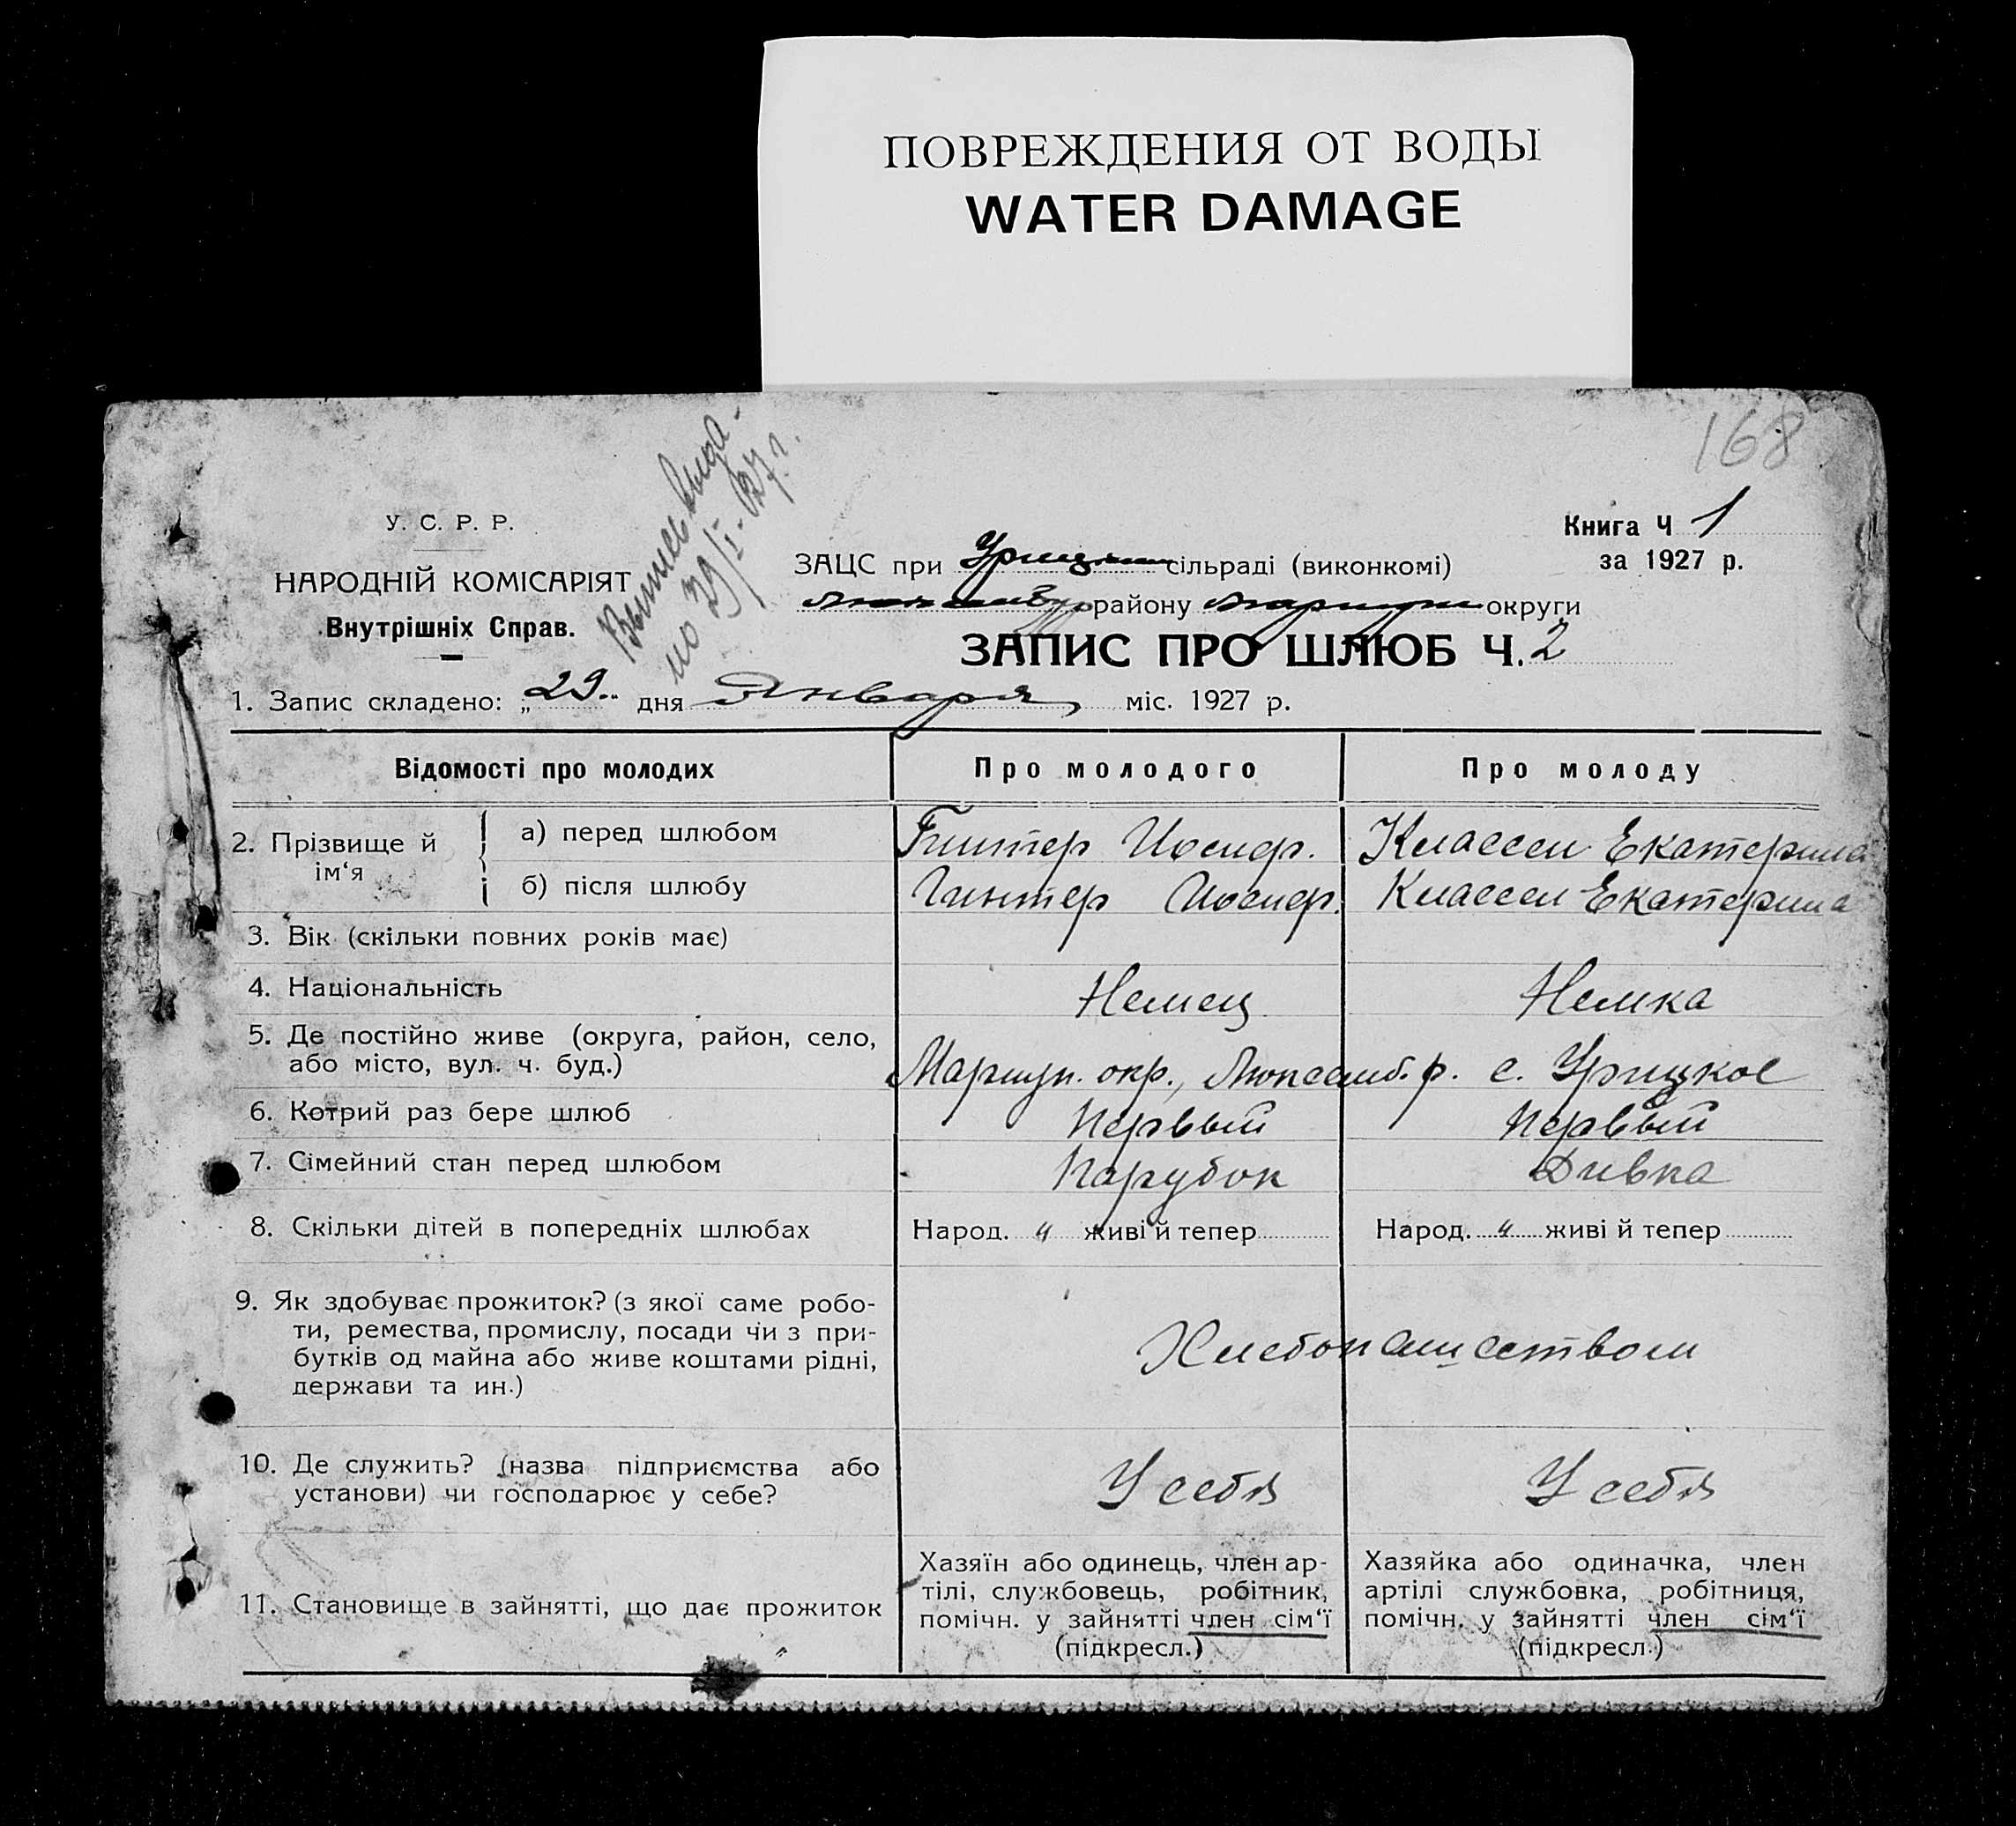 ПОВРЕЖДЕНИЯ ОТ ВОДЫ
WATER DAMAGE
168
У. С. Р. Р.
НАРОДНІЙ КОМІСАРІЯТ
Внутрішніх Справ.
по 29/I-27 г.
Книга Ч 1
за 1927 р.
ЗАЦС при Урицком сільраді (виконкомі)
району округи
ЗАПИС ПРО ШЛЮБ Ч. 2
1. Запис складено: „29" дня Января міс. 1927 р.
Відомості про молодих Про молодого Про молоду
2. Прізвище й ім‘я
а) перед шлюбом Гинтер Иосиф. Классен Екатерина
б) після шлюбу Гинтер Иосиф. Классен Екатерина
3. Вік (скільки повних років має)
4. Національність Немец Немка
5. Де постійно живе (округа, район, село,
або місто, вул. ч. буд.) Мариуп. окр., Люксемб. р. с. Урицкое
6. Котрий раз бере шлюб Первый Первый
7. Сімейний стан перед шлюбом Парубок Дивка
8. Скільки дітей в попередніх шлюбах Народ. „ живі й тепер Народ. „ живі й тепер
9. Як здобуває прожиток? (з якої саме робо-
ти, ремества, промислу, посади чи з при-
бутків од майна або живе коштами рідні,
держави та ин.)
Хлебопашеством
10. Де служить? (назва підприємства або
установи) чи господарює у себе?
У себя У себя
11. Становище в зайнятті, що дає прожиток
Хазяїн або одинець, член ар-
тілі, службовець, робітник,
помічн. у зайнятті член сім‘ї
(підкресл.)
Хазяйка або одиначка, член
артілі службовка, робітниця,
помічн. у зайнятті член сім‘ї
(підкресл.)